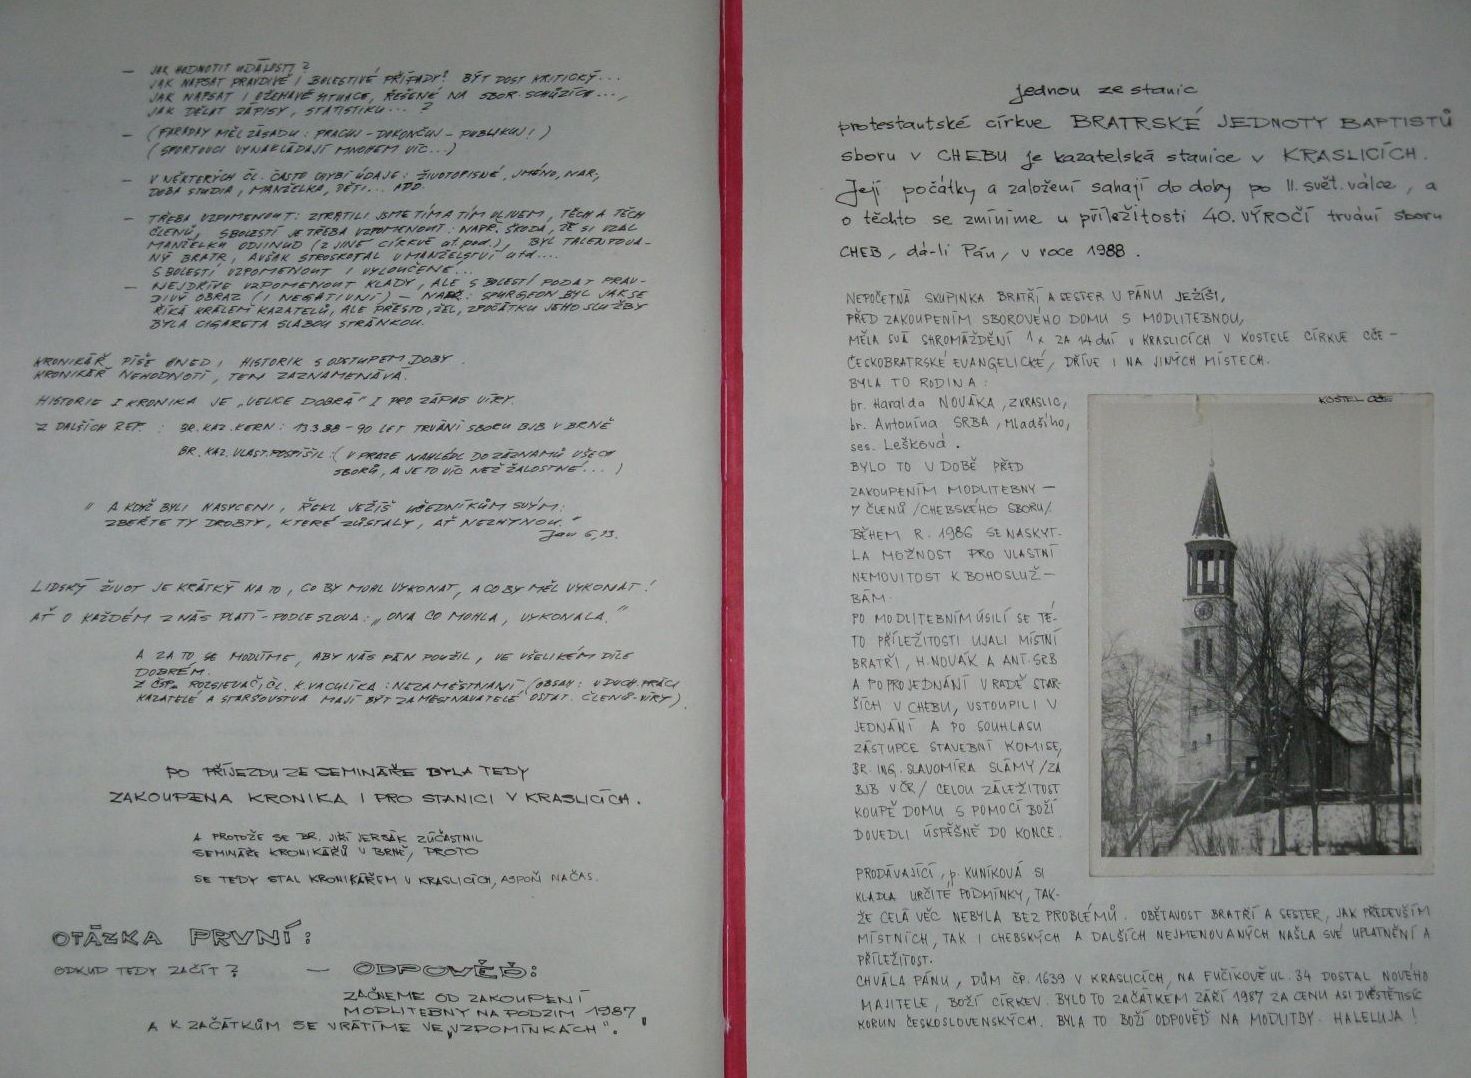 – JAK HODNOTIT UDÁLOSTI?
JAK NAPSAT PRAVDIVĚ I BOLESTIVÉ PŘÍPADY? BÝT DOST KRITICKÝ...
JAK NAPSAT I OŽEHAVÉ SITUACE, ŘEŠENÉ NA SBOR. SCHŮZÍCH...,
JAK DĚLAT ZÁPISY, STATISTIKU...?
– (FARADAY MĚL ZÁSADU: PRACUJ – DOKONČUJ – PUBLIKUJ!)
(SPORTOVCI VYNAKLÁDAJÍ MNOHEM VÍC...)
– V NĚKTERÝCH ČL. ČASTO CHYBÍ ÚDAJE: ŽIVOTOPISNÉ, JMÉNO, NAR,
DOBA STUDIA, MANŽELKA, DĚTI... APD.
– TŘEBA VZPOMENOUT: ZTRATILI JSME TÍM A TÍM VLIVEM, TĚCH A TĚCH
ČLENŮ, S BOLESTÍ JE TŘEBA VZPOMENOUT: NAPŘ. ŠKODA, ŽE SI VZAL
MANŽELKU ODJINUD (Z JINÉ CÍRKVE at. pod.), BYL TALENTOVA-
NÝ BRATR, AVŠAK STROSKOTAL V MANŽELSTVÍ atd....
S BOLESTÍ VZPOMENOUT I VYLOUČENÉ...
– NEJDŘÍVE VZPOMENOUT KLADY, ALE S BOLESTÍ PODAT PRAV-
DIVÝ OBRAZ (I NEGATIVNÍ) – NAPŘ: SPURGEON BYL JAK SE
ŘÍKÁ KRÁLEM KAZATELŮ, ALE PŘESTO, ŽEL, ZPOČÁTKU JEHO SLUŽBY
BYLA CIGARETA SLABOU STRÁNKOU.
KRONIKÁŘ PÍŠE HNED, HISTORIK S ODSTUPEM DOBY.
KRONIKÁŘ NEHODNOTÍ, TEN ZAZNAMENÁVÁ.
HISTORIE I KRONIKA JE „VELICE DOBRÁ" I PRO ZÁPAS VÍRY.
Z DALŠÍCH REF.: BR. KAZ. KERN: 13.3.88 – 90 LET TRVÁNÍ SBORU BJB V BRNĚ
BR. KAZ. VLAST. POSPÍŠIL: (V PRAZE NAHLÉDL DO ZÁZNAMŮ VŠECH
SBORŮ, A JE TO VÍC NEŽ ŽALOSTNÉ...)
" A KDYŽ BYLI NASYCENI, ŘEKL JEŽÍŠ UČEDNÍKŮM SVÝM:
ZBEŘTE TY DROBTY, KTERÉ ZŮSTALY, AŤ NEZHYNOU."
Jan 6,13.
LIDSKÝ ŽIVOT JE KRÁTKÝ NA TO, CO BY MOHL VYKONAT, A CO BY MĚL VYKONAT!
AŤ O KAŽDÉM Z NÁS PLATÍ – PODLE SLOVA: „ONA CO MOHLA, VYKONALA."
A ZA TO SE MODLÍME, ABY NÁS PÁN POUŽIL, VE VŠELIKÉM DÍLE
DOBRÉM.
Z ČSP. ROZSIEVAČ, ČL. K. VACULÍKA: NEZAMĚSTNANÍ (OBSAH: V DUCH. PRÁCI
KAZATELÉ A STARŠOVSTVA MAJÍ BÝT ZAMĚSTNAVATELÉ OSTAT. ČLENŮ – VÍRY).
PO PŘÍJEZDU ZE SEMINÁŘE BYLA TEDY
ZAKOUPENA KRONIKA I PRO STANICI V KRASLICÍCH.
A PROTOŽE SE BR. JIŘÍ JERSÁK ZÚČASTNIL
SEMINÁŘE KRONIKÁŘŮ V BRNĚ, PROTO
SE TEDY STAL KRONIKÁŘEM V KRASLICÍCH, ASPOŇ NAČAS.
OTÁZKA PRVNÍ:
ODKUD TEDY ZAČÍT? – ODPOVĚĎ:
ZAČNEME OD ZAKOUPENÍ
MODLITEBNY NA PODZIM 1987
A K ZAČÁTKŮM SE VRÁTÍME VE „VZPOMÍNKÁCH".
jednou ze stanic
protestantské církve BRATRSKÉ JEDNOTY BAPTISTŮ
sboru v CHEBU je kazatelská stanice v KRASLICÍCH.
Její počátky a založení sahají do doby po II. svět. válce, a
o těchto se zmíníme u příležitosti 40. VÝROČÍ trvání sboru
CHEB, dá-li Pán, v roce 1988.
NEPOČETNÁ SKUPINKA BRATŘÍ A SESTER V PÁNU JEŽÍŠI,
PŘED ZAKOUPENÍM SBOROVÉHO DOMU S MODLITEBNOU,
MĚLA SVÁ SHROMÁŽDĚNÍ 1x ZA 14 dní V KRASLICÍCH V KOSTELE CÍRKVE CČE –
ČESKOBRATRSKÉ EVANGELICKÉ, DŘÍVE I NA JINÝCH MÍSTECH.
BYLA TO RODINA:
br. Haralda NOVÁKA, Z KRASLIC,
br. Antonína SRBA, Mladšího,
ses. Lešková.
BYLO TO V DOBĚ PŘED
ZAKOUPENÍM MODLITEBNY –
7 ČLENŮ /CHEBSKÉHO SBORU/
BĚHEM R. 1986 SE NASKYT-
LA MOŽNOST PRO VLASTNÍ
NEMOVITOST K BOHOSLUŽ –
BÁM.
PO MODLITEBNÍM ÚSILÍ SE TÉ-
TO PŘÍLEŽITOSTI UJALI MÍSTNÍ
BRATŘI, H. NOVÁK A ANT. SRB
A PO PROJEDNÁNÍ V RADĚ STAR-
ŠÍCH V CHEBU, VSTOUPILI V
JEDNÁNÍ A PO SOUHLASU
ZÁSTUPCE STAVEBNÍ KOMISE,
BR. ING. SLAVOMÍRA SLÁMY /ZA
BJB V ČR/ CELOU ZÁLEŽITOST
KOUPĚ DOMU S POMOCÍ BOŽÍ
DOVEDLI ÚSPĚŠNĚ DO KONCE.
KOSTEL CČE
PRODÁVAJÍCÍ, p. KUNÍKOVÁ SI
KLADLA URČITÉ PODMÍNKY, TAK-
ŽE CELÁ VĚC NEBYLA BEZ PROBLÉMŮ. OBĚTAVOST BRATŘÍ A SESTER, JAK PŘEDEVŠÍM
MÍSTNÍCH, TAK I CHEBSKÝCH A DALŠÍCH NEJMENOVANÝCH NAŠLA SVÉ UPLATNĚNÍ A
PŘÍLEŽITOST.
CHVÁLA PÁNU, DŮM ČP. 1639 V KRASLICÍCH, NA FUČÍKOVĚ UL. 34 DOSTAL NOVÉHO
MAJITELE, BOŽÍ CÍRKEV. BYLO TO ZAČÁTKEM ZÁŘÍ 1987 ZA CENU ASI DVĚSTĚTISÍC
KORUN ČESKOSLOVENSKÝCH. BYLA TO BOŽÍ ODPOVĚĎ NA MODLITBY. HALELUJA!